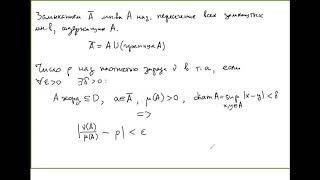 Замыканием Ā мн-ва A наз. пересечение всех замкнутых
мн-в, содержащих A.
Ā = A ∪ (граница A)
Число ρ наз плотностью заряда ν в т. a, если
∀ε>0 ∃δ>0:
A жорд ⊆ D, a∈Ā, μ(A)>0, diam A = sup |x-y| < δ
x,y∈A
=>
|ν(A)/μ(A) - ρ| < ε